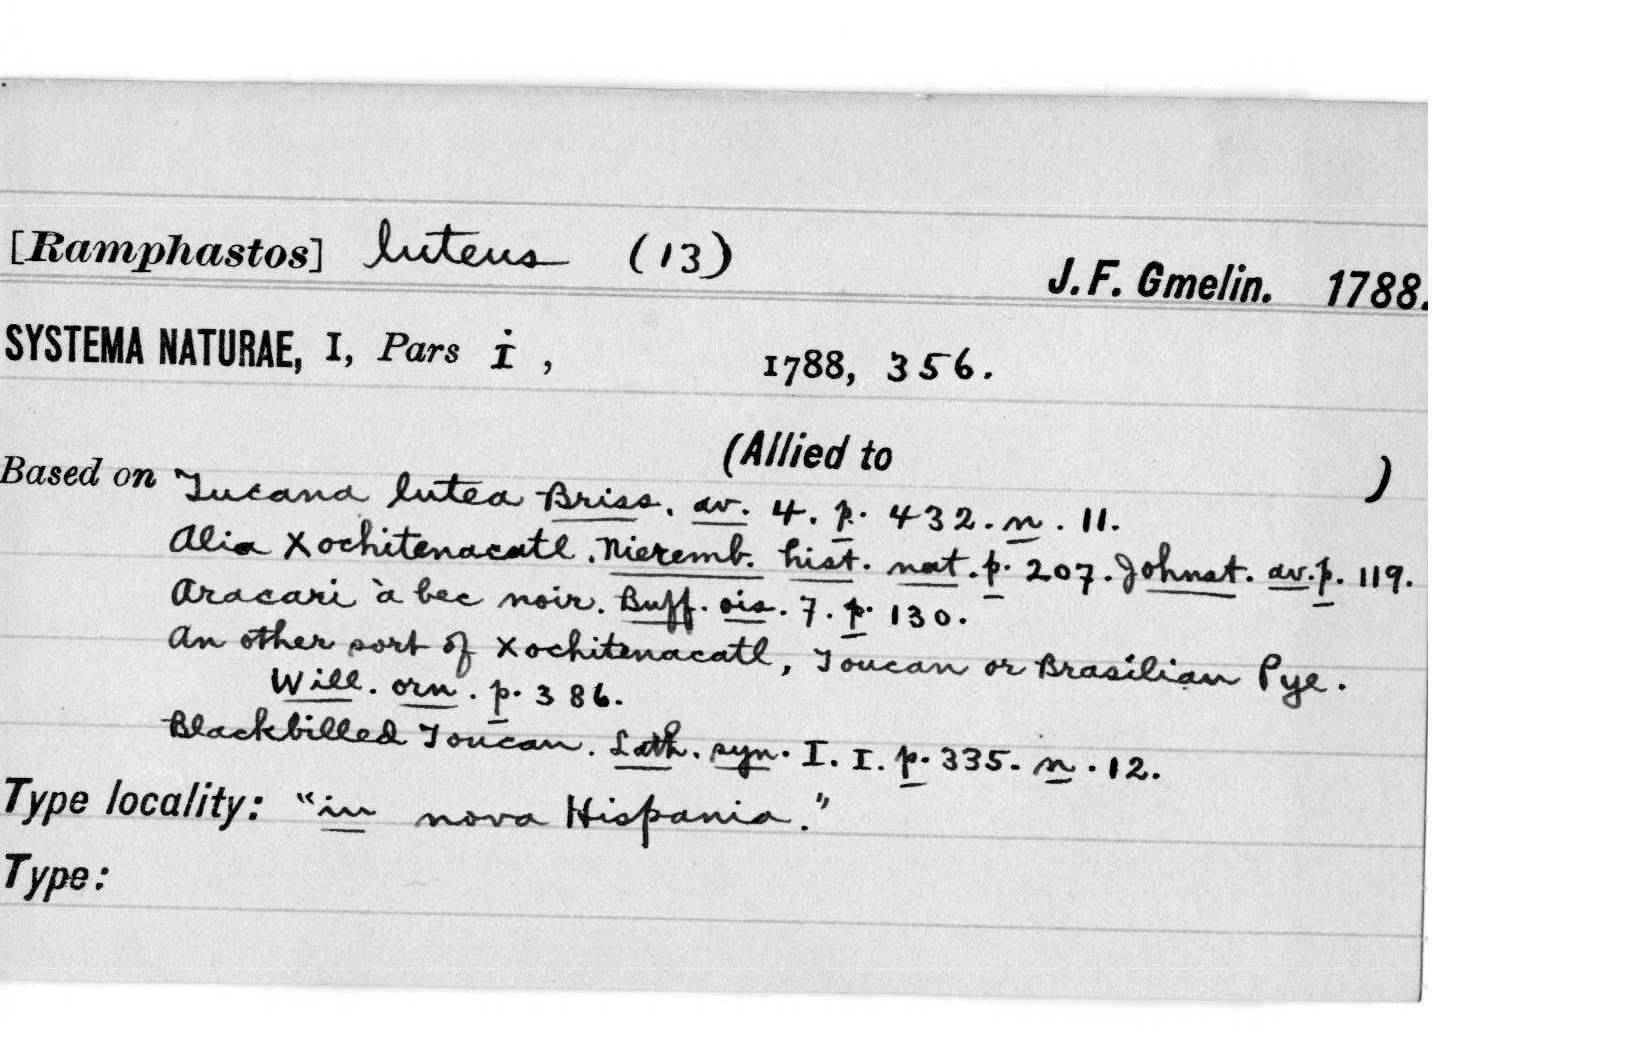 [Ramphastos] luteus (13)
J. F. Gmelin. 1788.
SYSTEMA NATURAE, I, Pars i, 1788, 356.
(Allied to )
Based on Tucana lutea Briss. av. 4. p. 432. n. 11.
Alia Xochitenacatl. Nieremb. hist. nat. p. 207. Johnst. av. p. 119.
Aracari à bec noir. Buff. ois. 7. p. 130.
An other sort of Xochitenacatl, Toucan or Brasilian Pye.
Will. orn. p. 386.
Blackbilled Toucan. Lath. syn. I. I. p. 335. n. 12.
Type locality: "in nova Hispania."
Type: